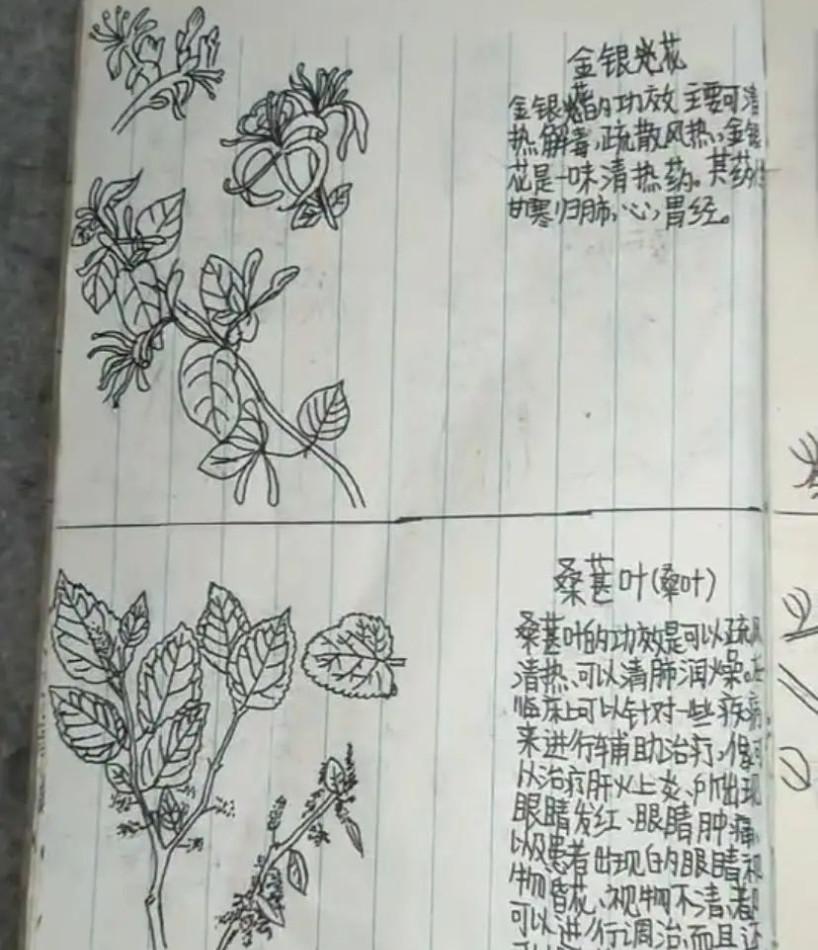 金银花
金银花的功效 主要可清
热解毒,疏散风热。金银
花是一味清热药。其药性
甘寒归肺,心,胃经。
桑葚叶(桑叶)
桑葚叶的功效是可以疏风
清热、可以清肺润燥。在
临床上可以针对一些疾病
来进行辅助治疗。像可
以治疗肝火上炎、所出现
眼睛发红、眼睛肿痛
以及患者出现的眼睛视
物昏花、视物不清、都
可以进行调治,而且还